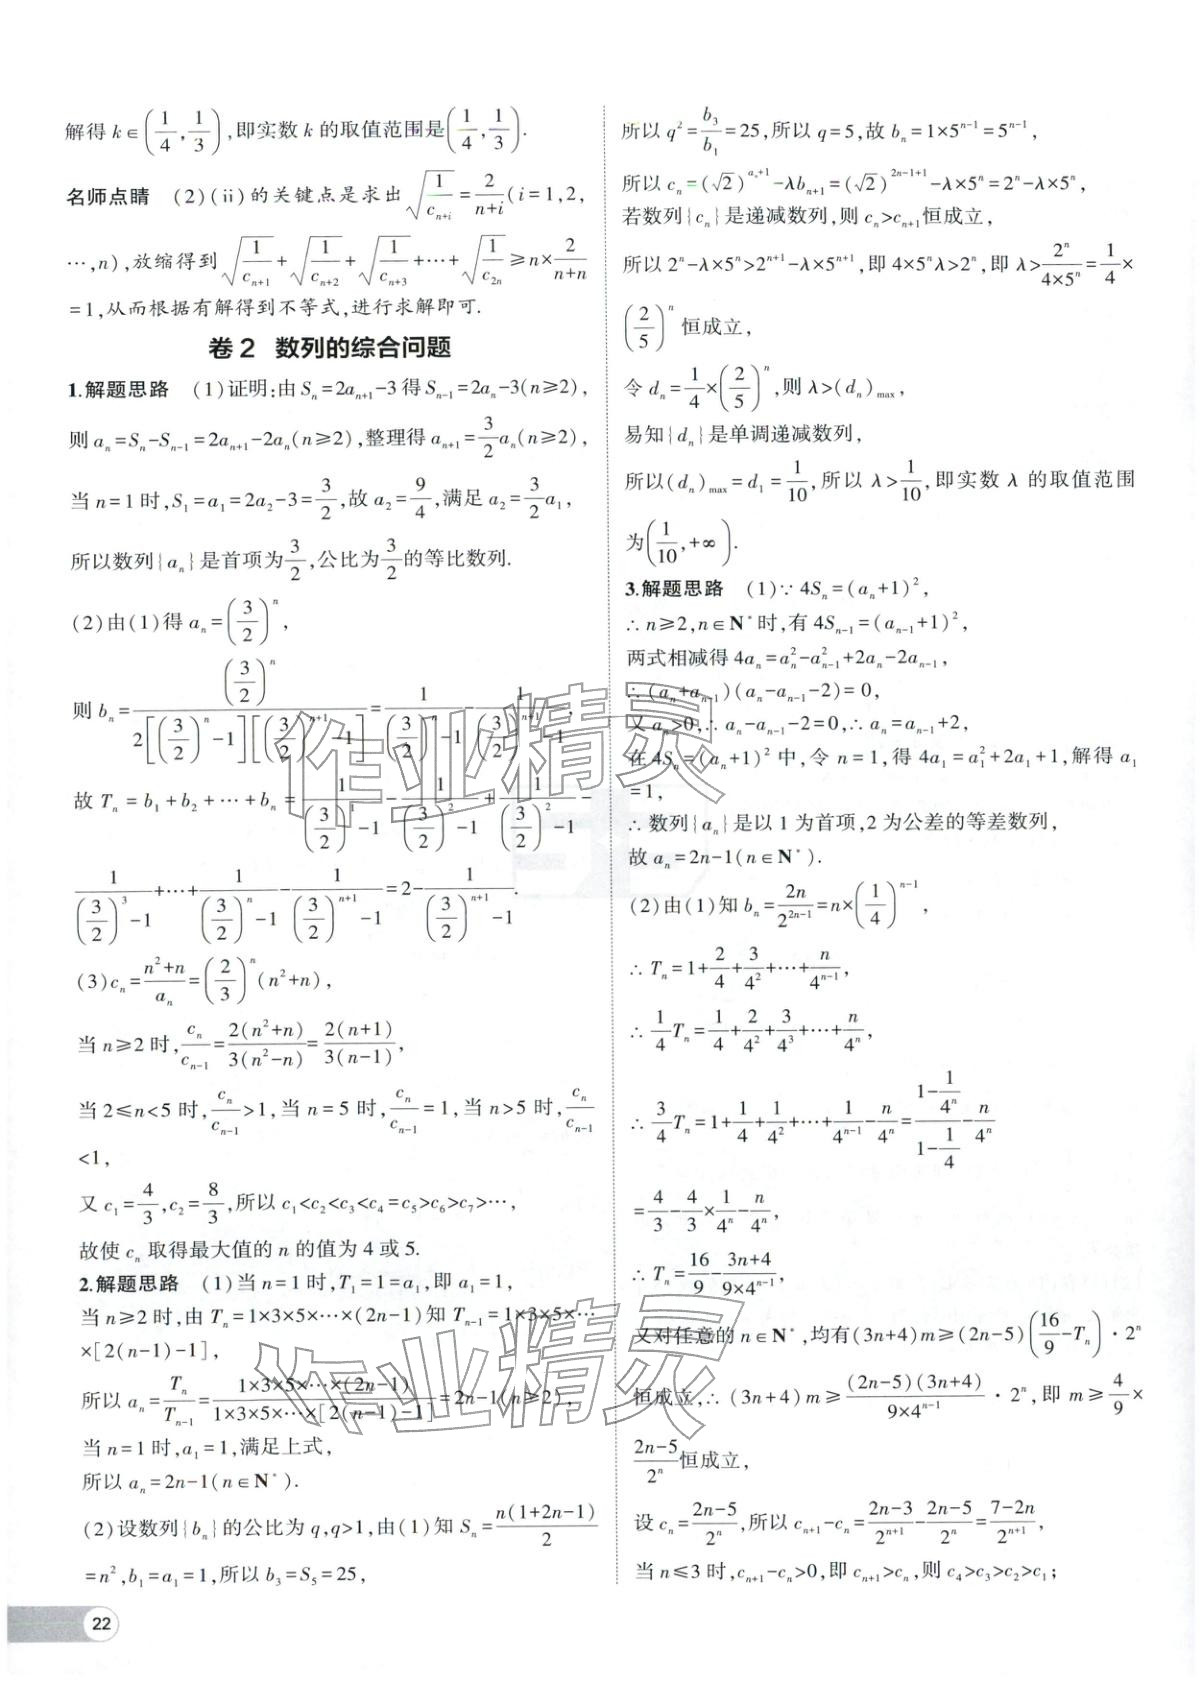 解得 k∈(1/4,1/3),即实数 k 的取值范围是(1/4,1/3).
名师点睛 (2)(ii)的关键点是求出√(1/c_{n+i})=2/(n+i)(i=1,2,
…,n),放缩得到√(1/c_{n+1})+√(1/c_{n+2})+√(1/c_{n+3})+…+√(1/c_{2n})≥n×2/(n+n)
=1,从而根据有解得到不等式,进行求解即可.
卷2 数列的综合问题
1.解题思路 (1)证明:由 S_n=2a_{n+1}-3 得 S_{n-1}=2a_n-3(n≥2),
则 a_n=S_n-S_{n-1}=2a_{n+1}-2a_n(n≥2),整理得 a_{n+1}=3/2 a_n(n≥2),
当 n=1 时,S_1=a_1=2a_2-3=3/2,故 a_2=9/4,满足 a_2=3/2 a_1,
所以数列{a_n}是首项为3/2,公比为3/2的等比数列.
(2)由(1)得 a_n=(3/2)^n,
则 b_n=(3/2)^n/(2[(3/2)^n-1][(3/2)^{n+1}-1])=1/((3/2)^n-1)-1/((3/2)^{n+1}-1),
故 T_n=b_1+b_2+…+b_n=1/(3/2-1)-1/((3/2)^2-1)+1/((3/2)^2-1)-
1/((3/2)^3-1)+…+1/((3/2)^n-1)-1/((3/2)^{n+1}-1)=2-1/((3/2)^{n+1}-1).
(3)c_n=(n^2+n)/a_n=(2/3)^n(n^2+n),
当 n≥2 时,c_n/c_{n-1}=2(n^2+n)/3(n^2-n)=2(n+1)/3(n-1),
当 2≤n<5 时,c_n/c_{n-1}>1,当 n=5 时,c_n/c_{n-1}=1,当 n>5 时,c_n/c_{n-1}
<1,
又 c_1=4/3,c_2=8/3,所以 c_1<c_2<c_3<c_4=c_5>c_6>c_7>…,
故使 c_n 取得最大值的 n 的值为 4 或 5.
2.解题思路 (1)当 n=1 时,T_1=1=a_1,即 a_1=1,
当 n≥2 时,由 T_n=1×3×5×…×(2n-1)知 T_{n-1}=1×3×5×…
×[2(n-1)-1],
所以 a_n=T_n/T_{n-1}=1×3×5×…×(2n-1)/1×3×5×…×[2(n-1)-1]=2n-1(n≥2),
当 n=1 时,a_1=1,满足上式,
所以 a_n=2n-1(n∈N*).
(2)设数列{b_n}的公比为 q,q>1,由(1)知 S_n=n(1+2n-1)/2
=n^2,b_1=a_1=1,所以 b_3=S_5=25,
22
所以 q^2=b_3/b_1=25,所以 q=5,故 b_n=1×5^{n-1}=5^{n-1},
所以 c_n=(√2)^{a_n+1}-λb_{n+1}=(√2)^{2n-1+1}-λ×5^n=2^n-λ×5^n,
若数列{c_n}是递减数列,则 c_n>c_{n+1}恒成立,
所以 2^n-λ×5^n>2^{n+1}-λ×5^{n+1},即 4×5^nλ>2^n,即 λ>2^n/(4×5^n)=1/4×
(2/5)^n 恒成立,
令 d_n=1/4×(2/5)^n,则 λ>(d_n)_{max},
易知{d_n}是单调递减数列,
所以(d_n)_{max}=d_1=1/10,所以 λ>1/10,即实数 λ 的取值范围
为(1/10,+∞).
3.解题思路 (1)∵4S_n=(a_n+1)^2,
∴n≥2,n∈N*时,有 4S_{n-1}=(a_{n-1}+1)^2,
两式相减得 4a_n=a_n^2-a_{n-1}^2+2a_n-2a_{n-1},
∴(a_n+a_{n-1})(a_n-a_{n-1}-2)=0,
又 a_n>0,∴a_n-a_{n-1}-2=0,∴a_n=a_{n-1}+2,
在 4S_n=(a_n+1)^2 中,令 n=1,得 4a_1=a_1^2+2a_1+1,解得 a_1
=1,
∴数列{a_n}是以 1 为首项,2 为公差的等差数列,
故 a_n=2n-1(n∈N*).
(2)由(1)知 b_n=2n/2^{2n-1}=n×(1/4)^{n-1},
∴T_n=1+2/4+3/4^2+…+n/4^{n-1},
∴1/4 T_n=1/4+2/4^2+3/4^3+…+n/4^n,
∴3/4 T_n=1+1/4+1/4^2+…+1/4^{n-1}-n/4^n=(1-1/4^n)/(1-1/4)-n/4^n
=4/3-4/3×1/4^n-n/4^n,
∴T_n=16/9-(3n+4)/(9×4^{n-1}),
又对任意的 n∈N*,均有(3n+4)m≥(2n-5)(16/9-T_n)·2^n
恒成立,∴(3n+4)m≥(2n-5)(3n+4)/(9×4^{n-1})·2^n,即 m≥4/9×
(2n-5)/2^n恒成立,
设 c_n=(2n-5)/2^n,所以 c_{n+1}-c_n=(2n-3)/2^{n+1}-(2n-5)/2^n=(7-2n)/2^{n+1},
当 n≤3 时,c_{n+1}-c_n>0,即 c_{n+1}>c_n,则 c_4>c_3>c_2>c_1;
作业精灵
作业精灵